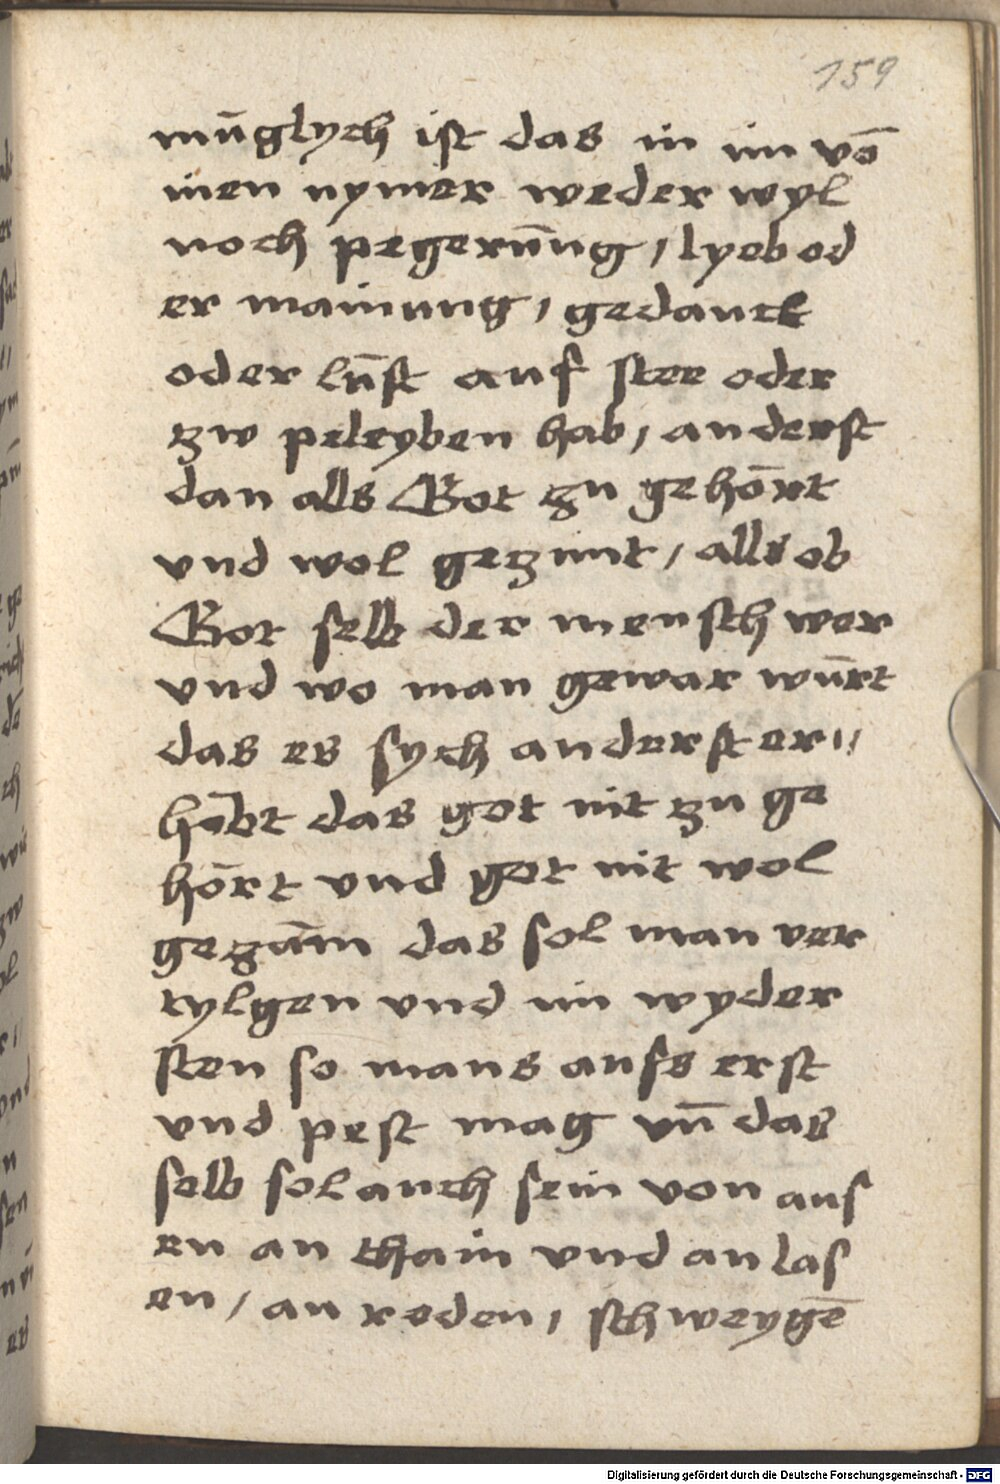 159
mu̅glych ist das in im vo̅
inen nymer weder wyl
noch pegeru̅ng / lyeb od
er mainung / gedanck
oder lu̅st auf stee oder
zw peleyben hab / anderst
dan alls Got zu geho̅rt
vnd wol gezimt / alls ob
Got selb der mensch wer
vnd wo man gewar wu̅rt
das es sych anderst er〃
ho̅bt das got nit zu ge
ho̅rt vnd got nit wol
geza̅m das sol man ver
tylgen vnd im wyder
sten so mans aufs erst
vnd pest mag vn̅ das
selb sol auch sein von aus
en an thain vnd an las
en / an reden / schweyge̅
Digitalisierung gefördert durch die Deutsche Forschungsgemeinschaft - DFG